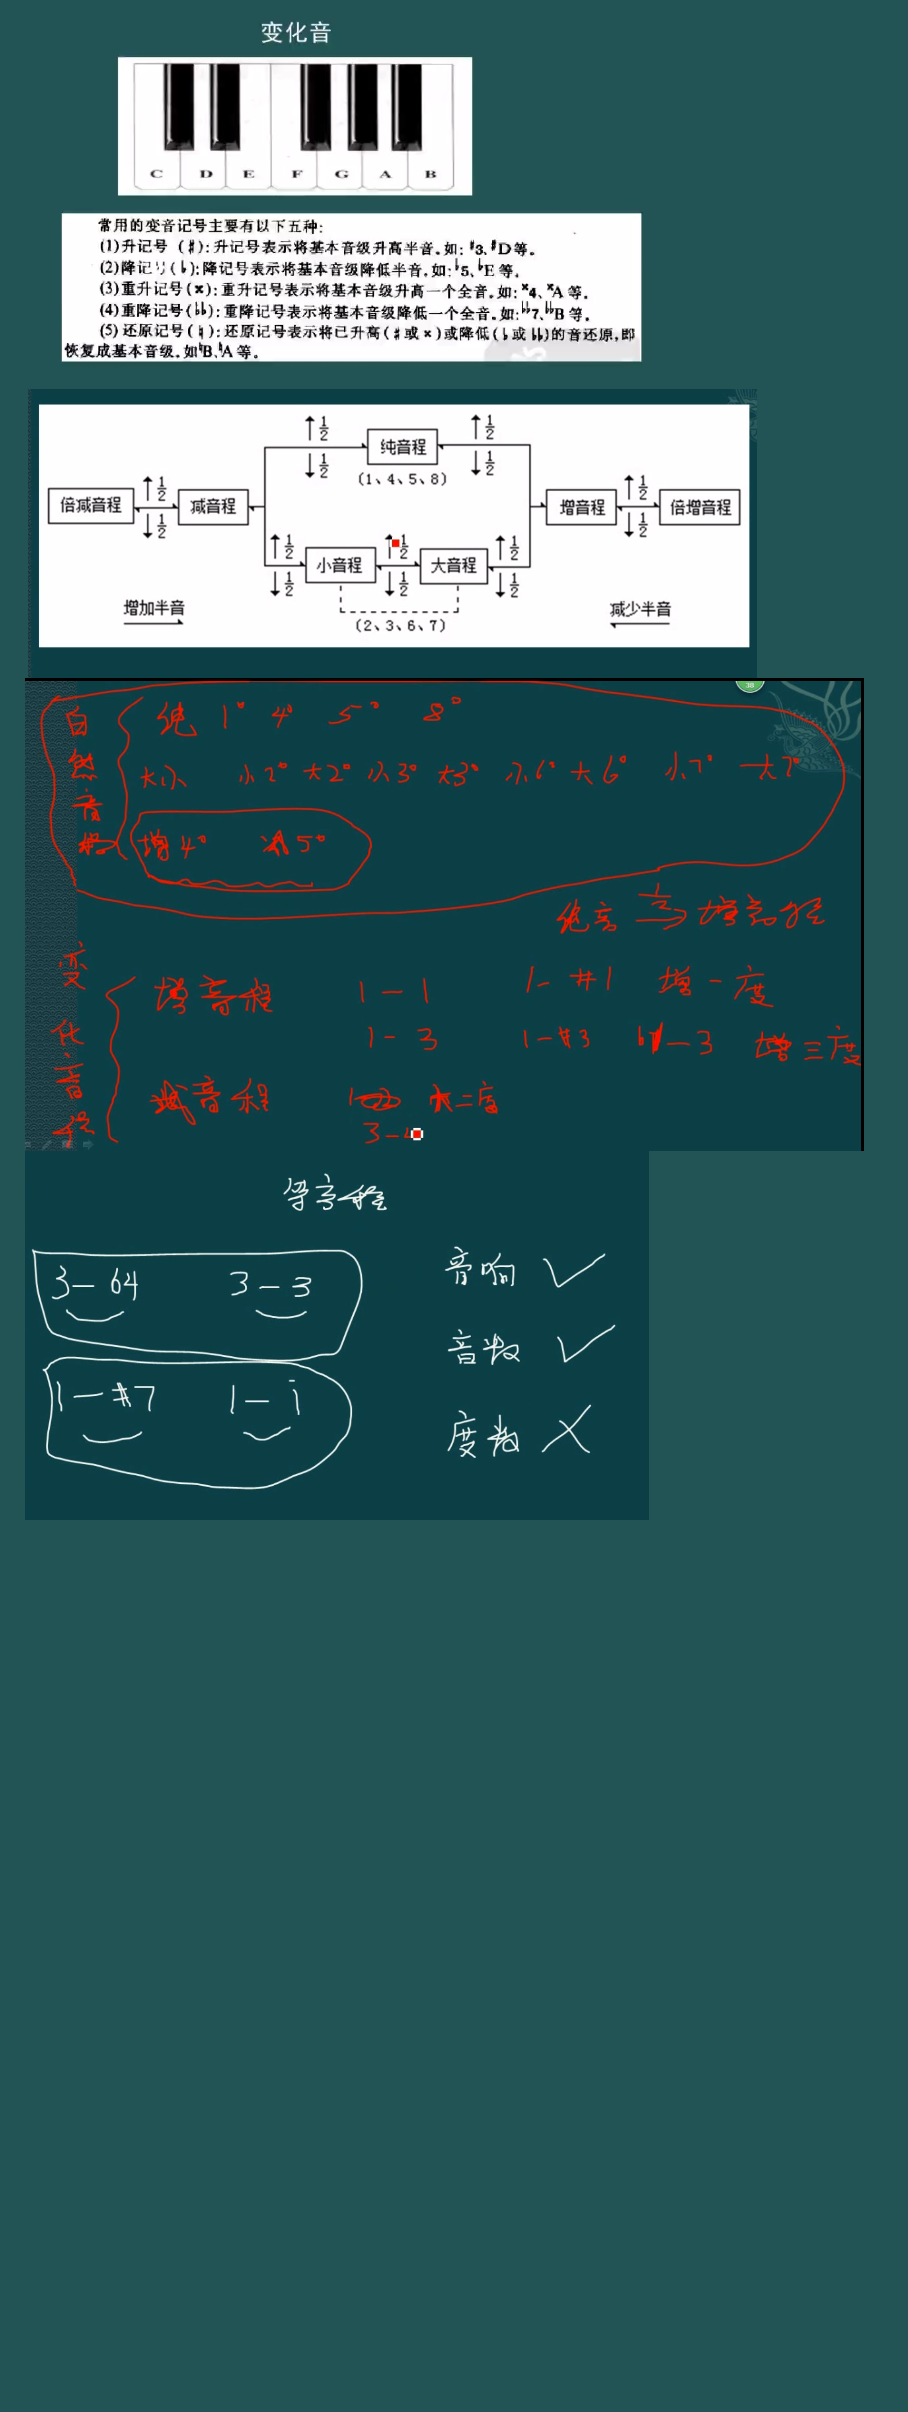 变化音
C D E F G A B
常用的变音记号主要有以下五种:
(1)升记号(♯):升记号表示将基本音级升高半音。如:♯3、♯D等。
(2)降记号(♭):降记号表示将基本音级降低半音。如:♭5、♭E等。
(3)重升记号(×):重升记号表示将基本音级升高一个全音。如:×4、×A等。
(4)重降记号(♭♭):重降记号表示将基本音级降低一个全音。如:♭♭7、♭♭B等。
(5)还原记号(♮):还原记号表示将已升高(♯或×)或降低(♭或♭♭)的音还原,即
恢复成基本音级。如♮B、♮A等。
↑1/2 纯音程 ↑1/2
↓1/2 (1、4、5、8) ↓1/2
倍减音程 ↑1/2 ↓1/2 减音程 增音程 ↑1/2 ↓1/2 倍增音程
↑1/2 ↓1/2 小音程 ↑1/2 ↓1/2 大音程 ↑1/2 ↓1/2
增加半音 减少半音
(2、3、6、7)
38
自然音程
纯 1° 4° 5° 8°
大小 小2° 大2° 小3° 大3° 小6° 大6° 小7° 大7°
增4° 减5°
纯音 增音程
变化音程
增音程 1-1 1-#1 增一度
1-3 1-#3 b1-3 增三度
减音程 大二度
3-4
等音程
3-b4 3-3 音响 ✓
音数 ✓
1-#7 1-i
度数 ✗